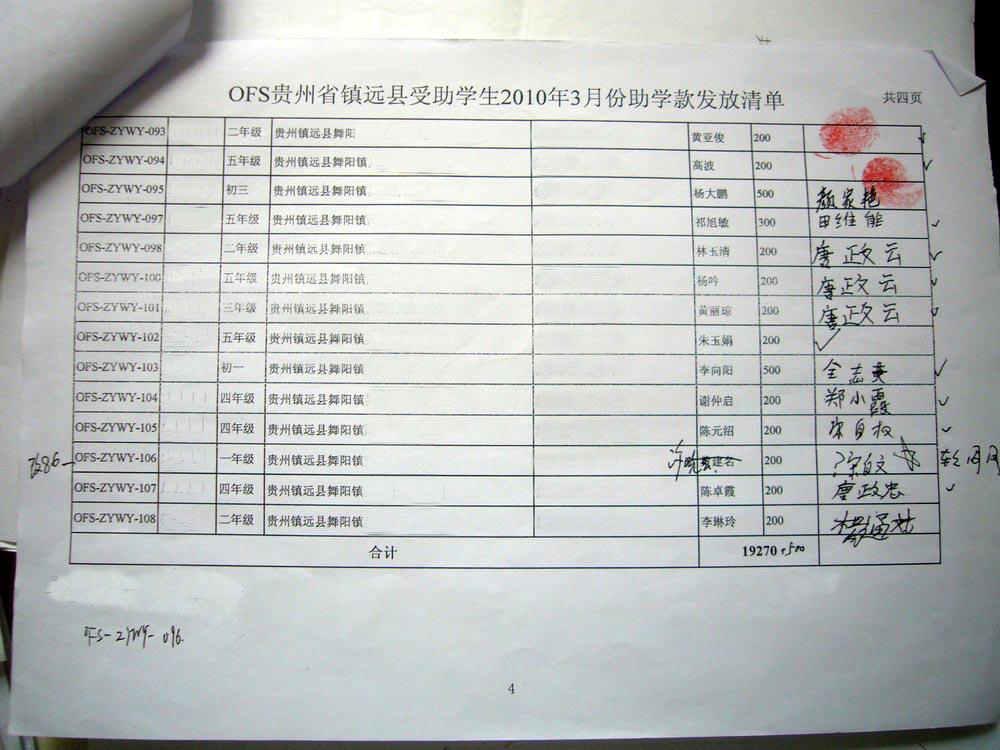 OFS贵州省镇远县受助学生2010年3月份助学款发放清单 共四页
OFS-ZYWY-093 二年级 贵州镇远县舞阳 黄亚俊 200
OFS-ZYWY-094 五年级 贵州镇远县舞阳镇 高波 200
OFS-ZYWY-095 初三 贵州镇远县舞阳镇 杨大鹏 500 颜家艳
OFS-ZYWY-097 五年级 贵州镇远县舞阳镇 祁旭敏 300 田维能
OFS-ZYWY-098 二年级 贵州镇远县舞阳镇 林玉清 200 唐政云
OFS-ZYWY-100 五年级 贵州镇远县舞阳镇 杨吟 200 唐政云
OFS-ZYWY-101 三年级 贵州镇远县舞阳镇 黄丽琼 200 唐政云
OFS-ZYWY-102 五年级 贵州镇远县舞阳镇 朱玉娟 200
OFS-ZYWY-103 初一 贵州镇远县舞阳镇 李向阳 500 全志英
OFS-ZYWY-104 四年级 贵州镇远县舞阳镇 谢仲启 200 郑小霞
OFS-ZYWY-105 四年级 贵州镇远县舞阳镇 陈元绍 200
OFS-ZYWY-106 一年级 贵州镇远县舞阳镇 200
OFS-ZYWY-107 四年级 贵州镇远县舞阳镇 陈卓霞 200 唐政忠
OFS-ZYWY-108 二年级 贵州镇远县舞阳镇 李琳玲 200
合计 19270 +500
OFS-ZYWY-096
4